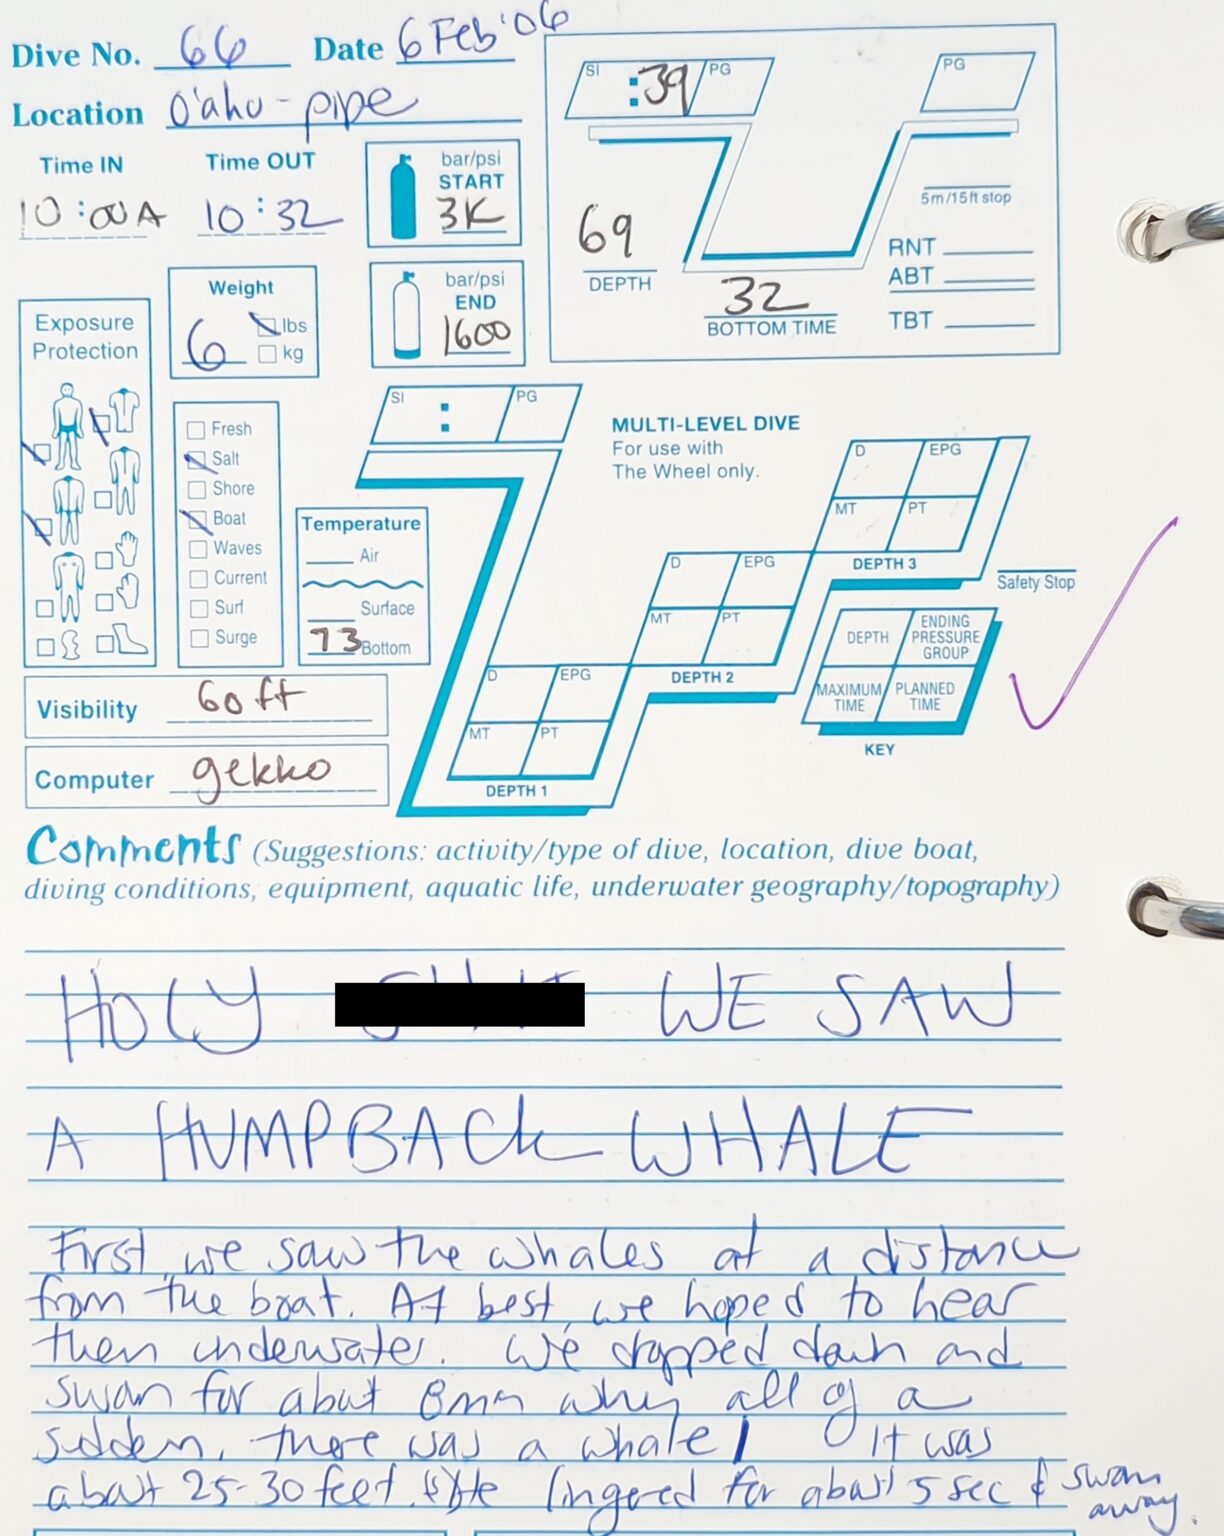 Dive No. 66 Date 6 Feb '06
Location O'ahu - pipe
Time IN Time OUT
10:00A 10:32
bar/psi
START
3K
bar/psi
END
1600
Weight
6 lbs
kg
SI :39 PG
PG
69
DEPTH
32
BOTTOM TIME
5m/15ft stop
RNT
ABT
TBT
Exposure
Protection
Fresh
Salt
Shore
Boat
Waves
Current
Surf
Surge
Temperature
Air
Surface
73 Bottom
Visibility 60 ft
Computer gekko
SI : PG
MULTI-LEVEL DIVE
For use with
The Wheel only.
D EPG
MT PT
DEPTH 1
D EPG
MT PT
DEPTH 2
D EPG
MT PT
DEPTH 3
Safety Stop
DEPTH
ENDING
PRESSURE
GROUP
MAXIMUM
TIME
PLANNED
TIME
KEY
Comments (Suggestions: activity/type of dive, location, dive boat,
diving conditions, equipment, aquatic life, underwater geography/topography)
HOLY WE SAW
A HUMPBACK WHALE
First, we saw the whales at a distance
from the boat. At best, we hoped to hear
them underwater. We dropped down and
swam for about 8min when all of a
sudden, there was a whale! It was
about 25-30 feet. lingered for about 5 sec & swam
away.